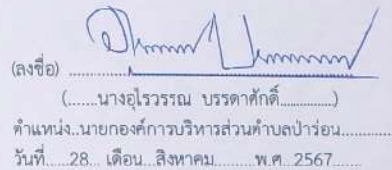 (ลงชื่อ) ............................................
(......นางอุไรวรรณ บรรดาศักดิ์..............)
ตำแหน่ง..นายกองค์การบริหารส่วนตำบลป่าร่อน.............
วันที่.....28.. เดือน...สิงหาคม........พ.ศ. 2567.......